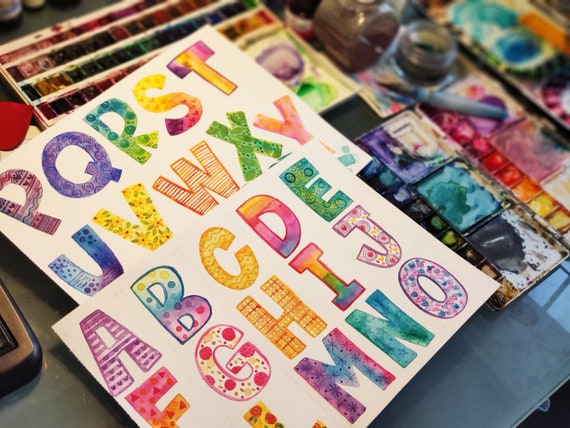 P Q R S T
U V W X Y
A B C D E
F G H I J
M N O